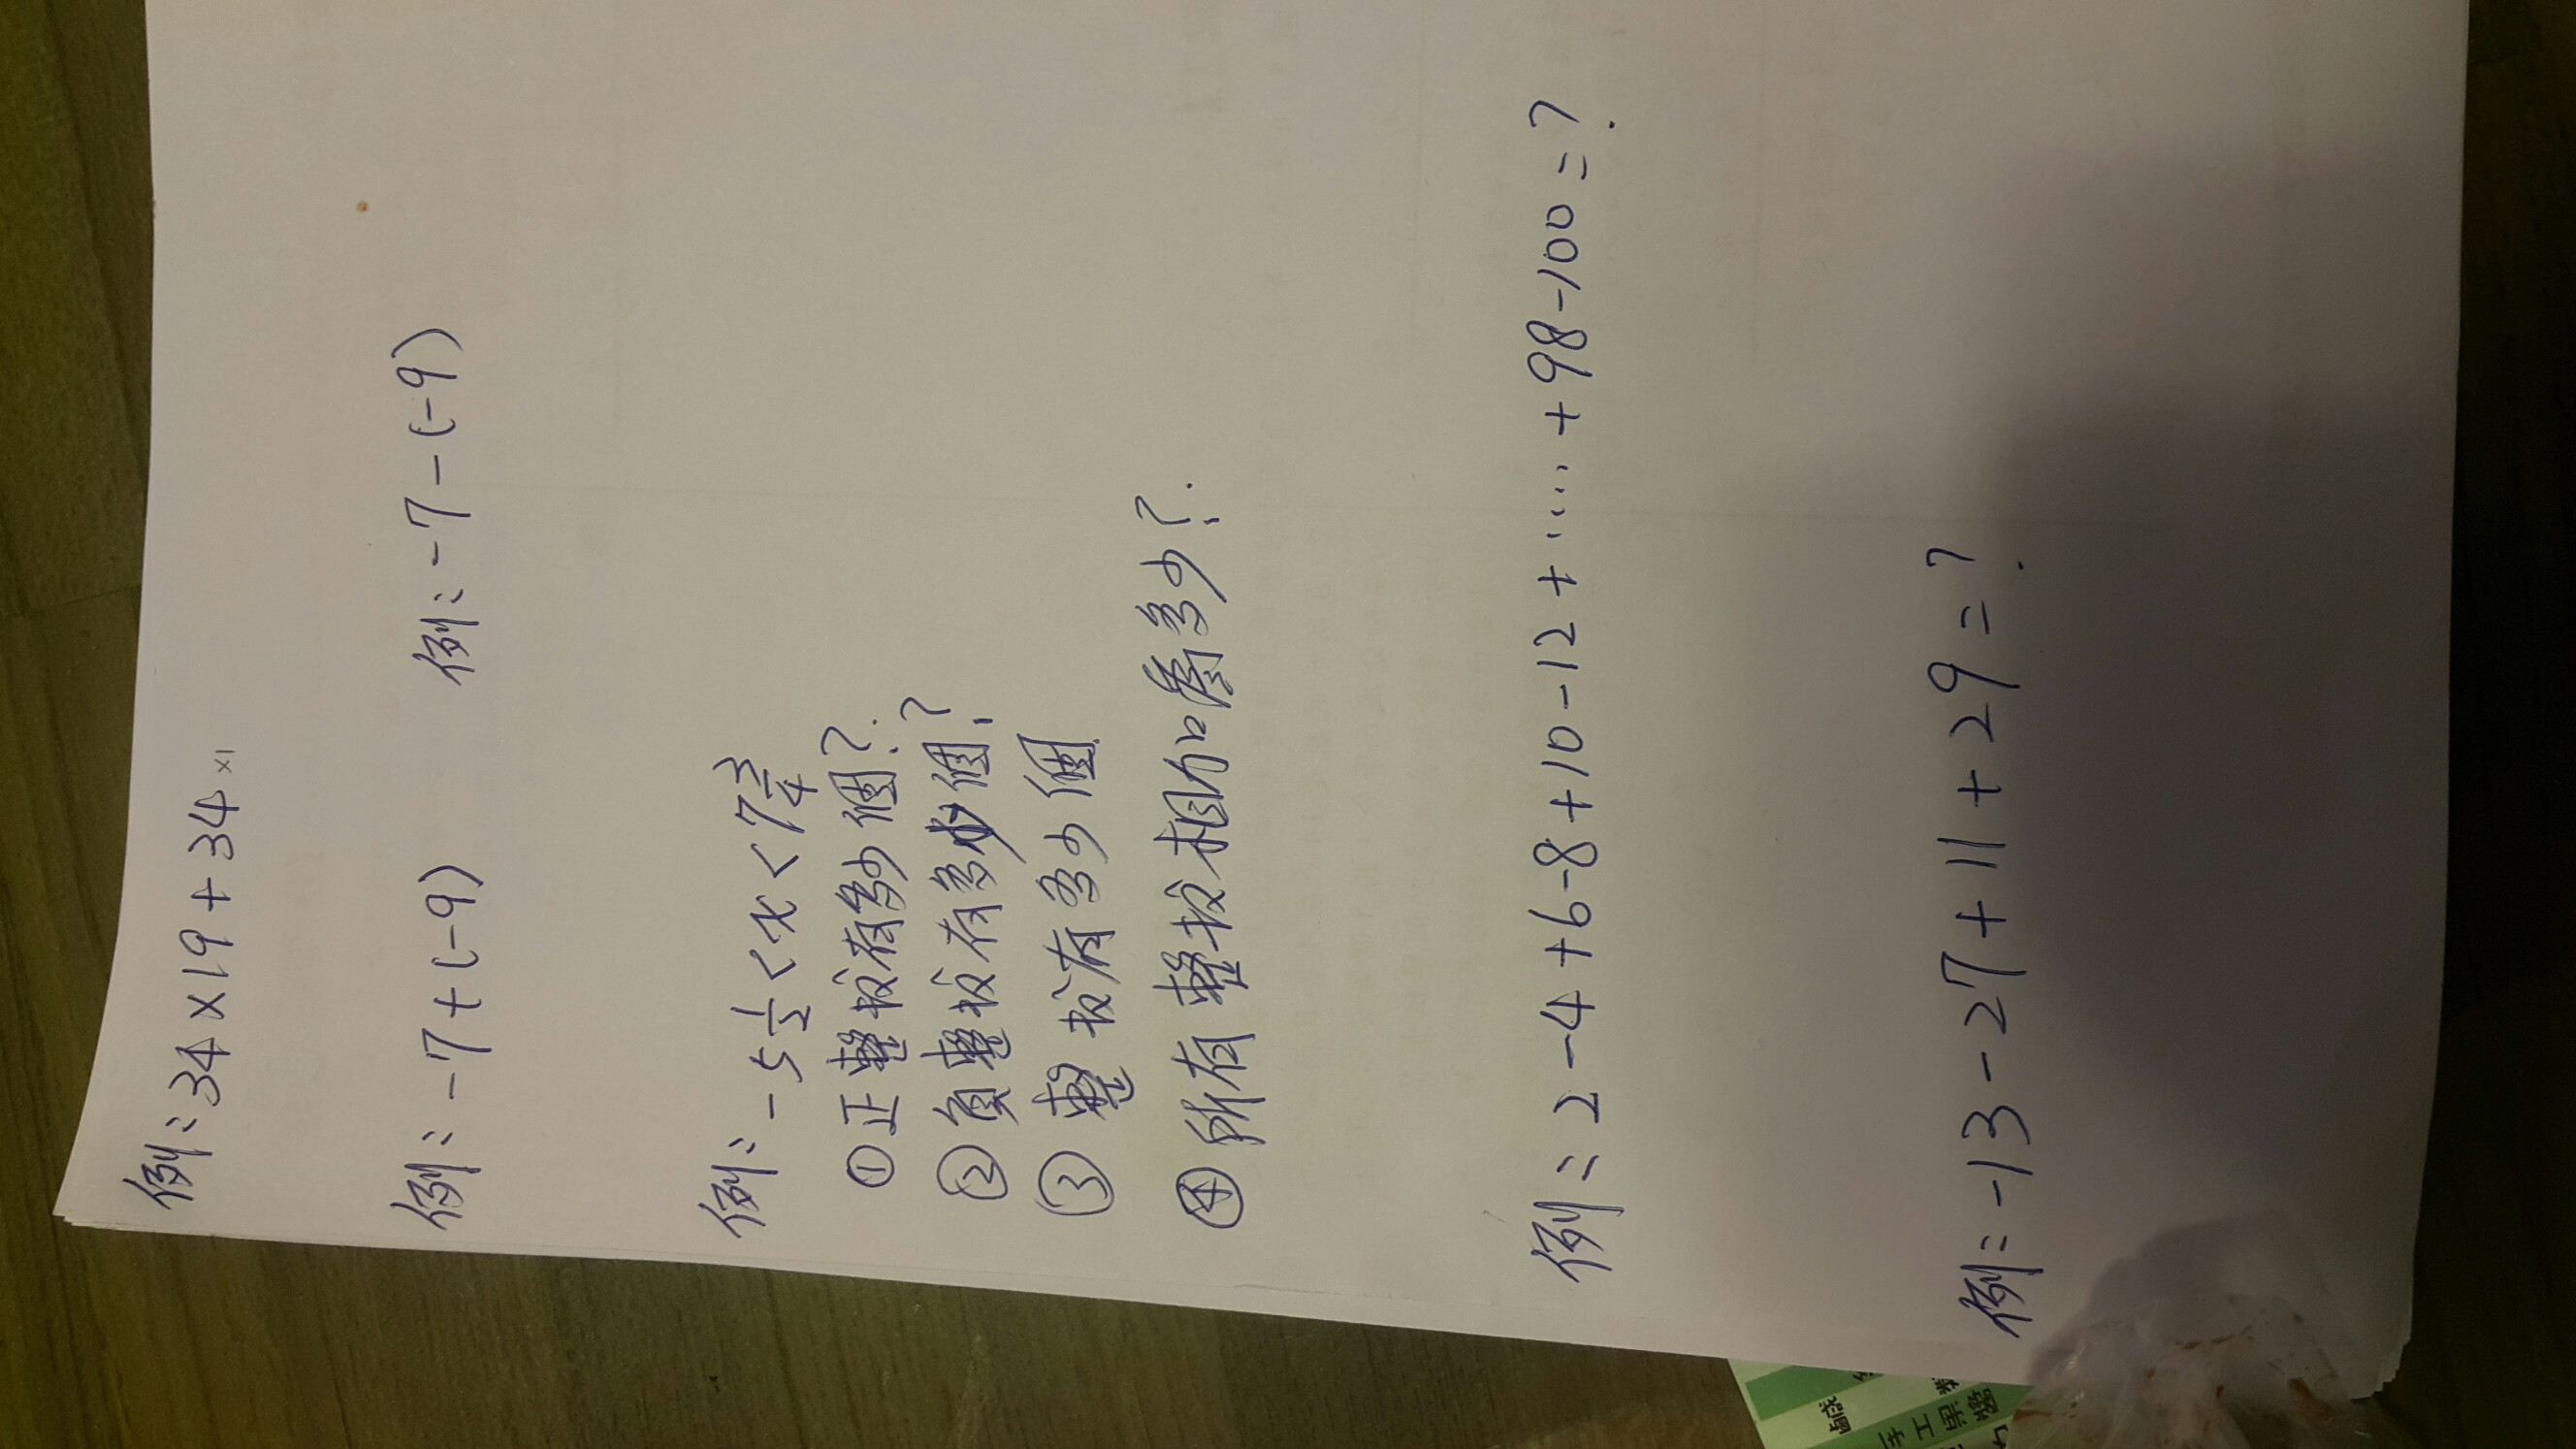 例：34×19+34×1
例：-7+(-9) 例：-7-(-9)
例：-5 1/2 < x < 7 3/4
①正整数有多少個？
②負整数有多少個？
③整数有多少個
④所有整数相加為多少？
例：2-4+6-8+10-12+……+98-100=?
例：-13-27+11+29=?
手工果